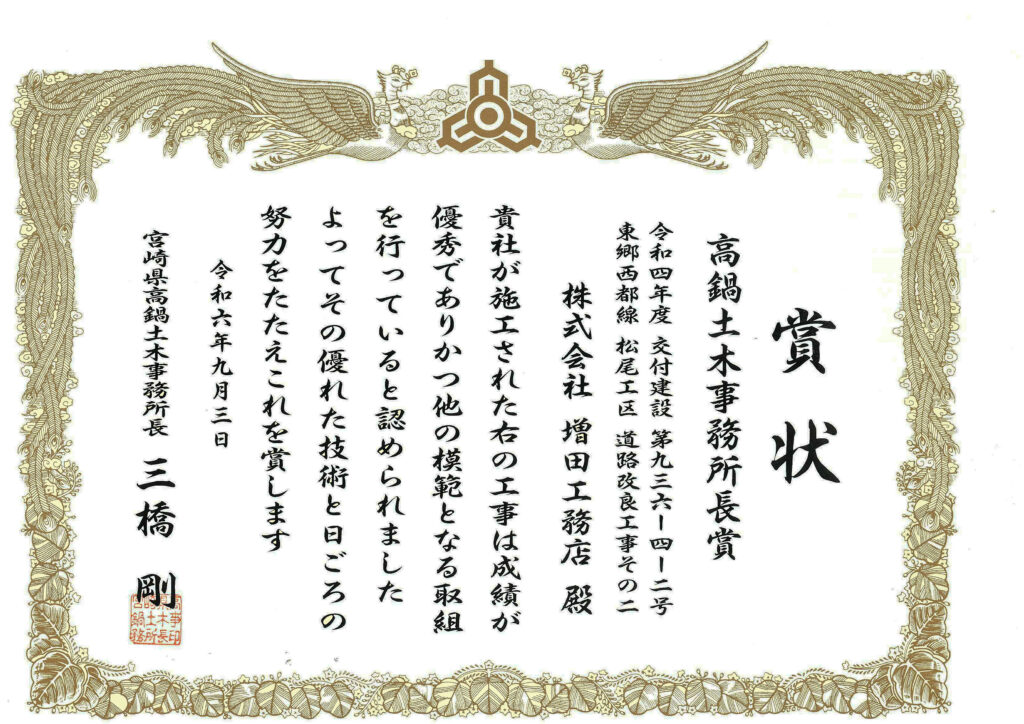 賞状
高鍋土木事務所長賞
令和四年度 交付建設 第九三六ー四ー二号
東郷西都線 松尾工区 道路改良工事その二
株式会社 増田工務店 殿
貴社が施工された右の工事は成績が
優秀でありかつ他の模範となる取組
を行っていると認められました
よってその優れた技術と日ごろの
努力をたたえこれを賞します
令和六年九月三日
宮崎県高鍋土木事務所長 三橋 剛